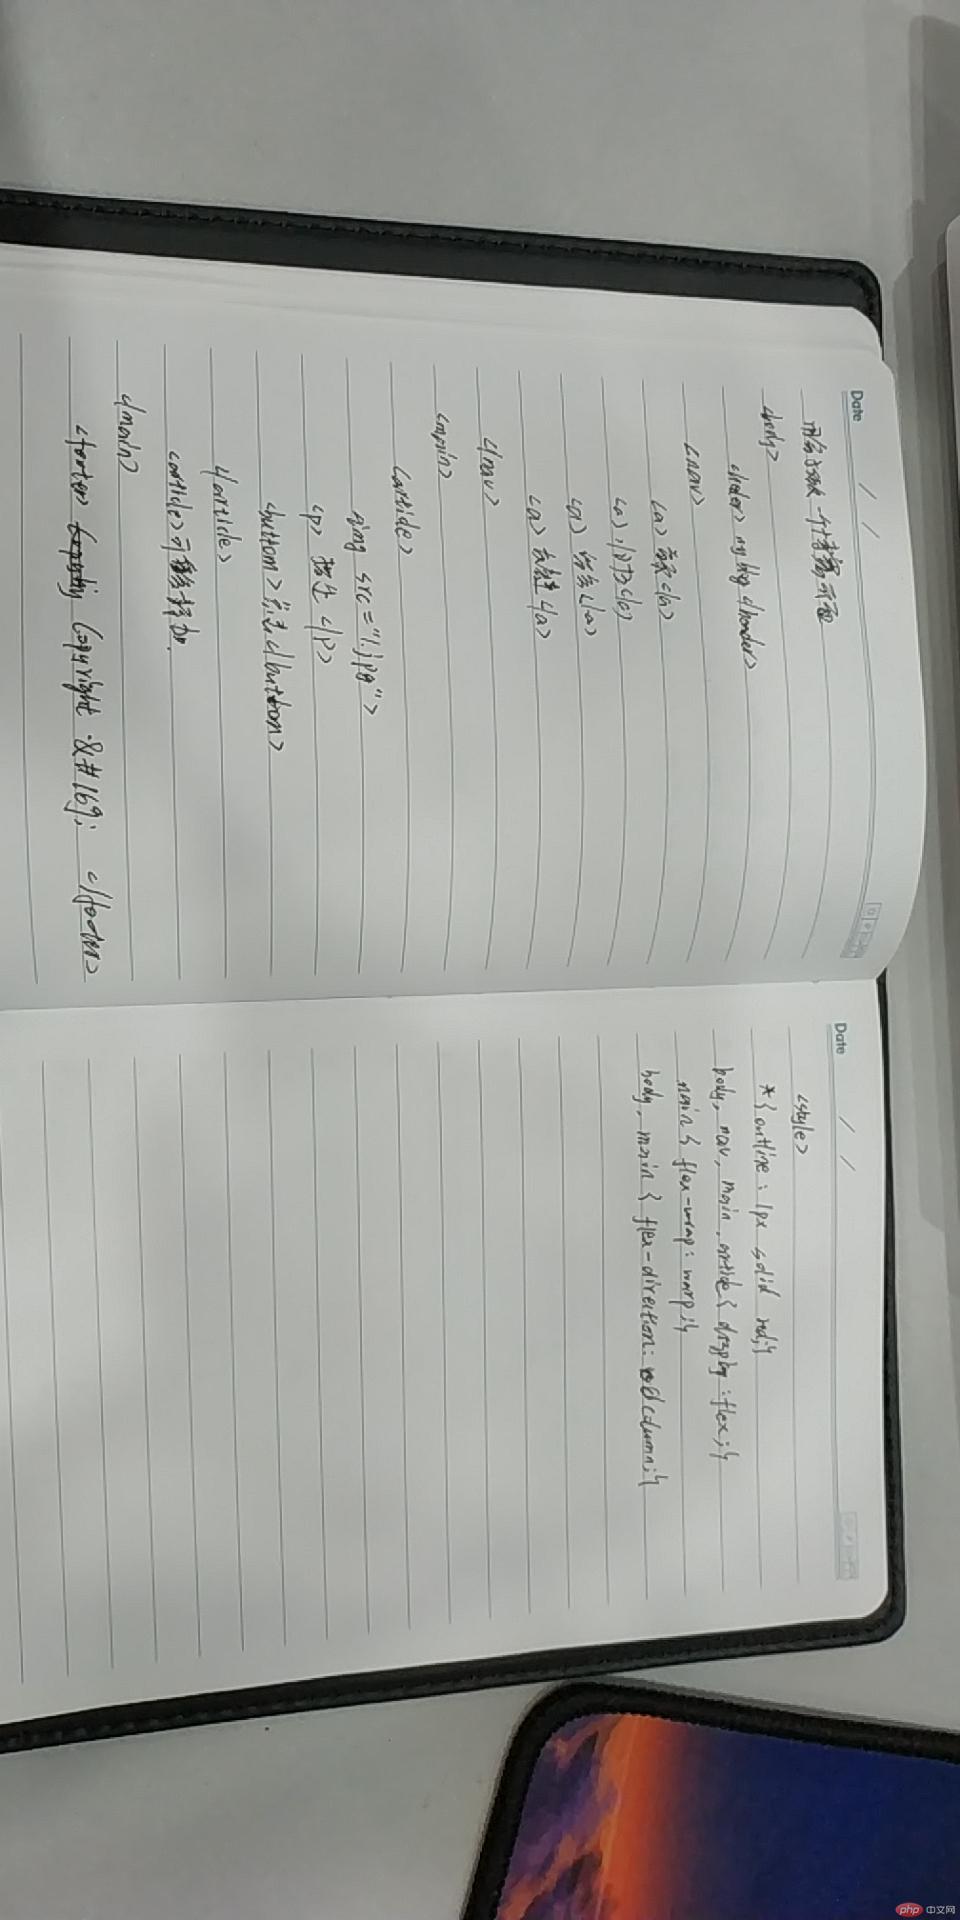 Date / /
<body>
<header> my blog </header>
<nav>
<a> 首页 </a>
<a> </a>
<a> </a>
<a> </a>
</nav>
<main>
<article>
<img src="1.jpg">
<p> </p>
<button> 点击 </button>
</article>
<article>
</main>
<footer> Copyright &#169; </footer>
Date / /
<style>
*{outline: 1px solid red;}
body, nav, main, article{display: flex;}
main{flex-wrap: warp;}
body, main{flex-direction: column;}
php 中文网